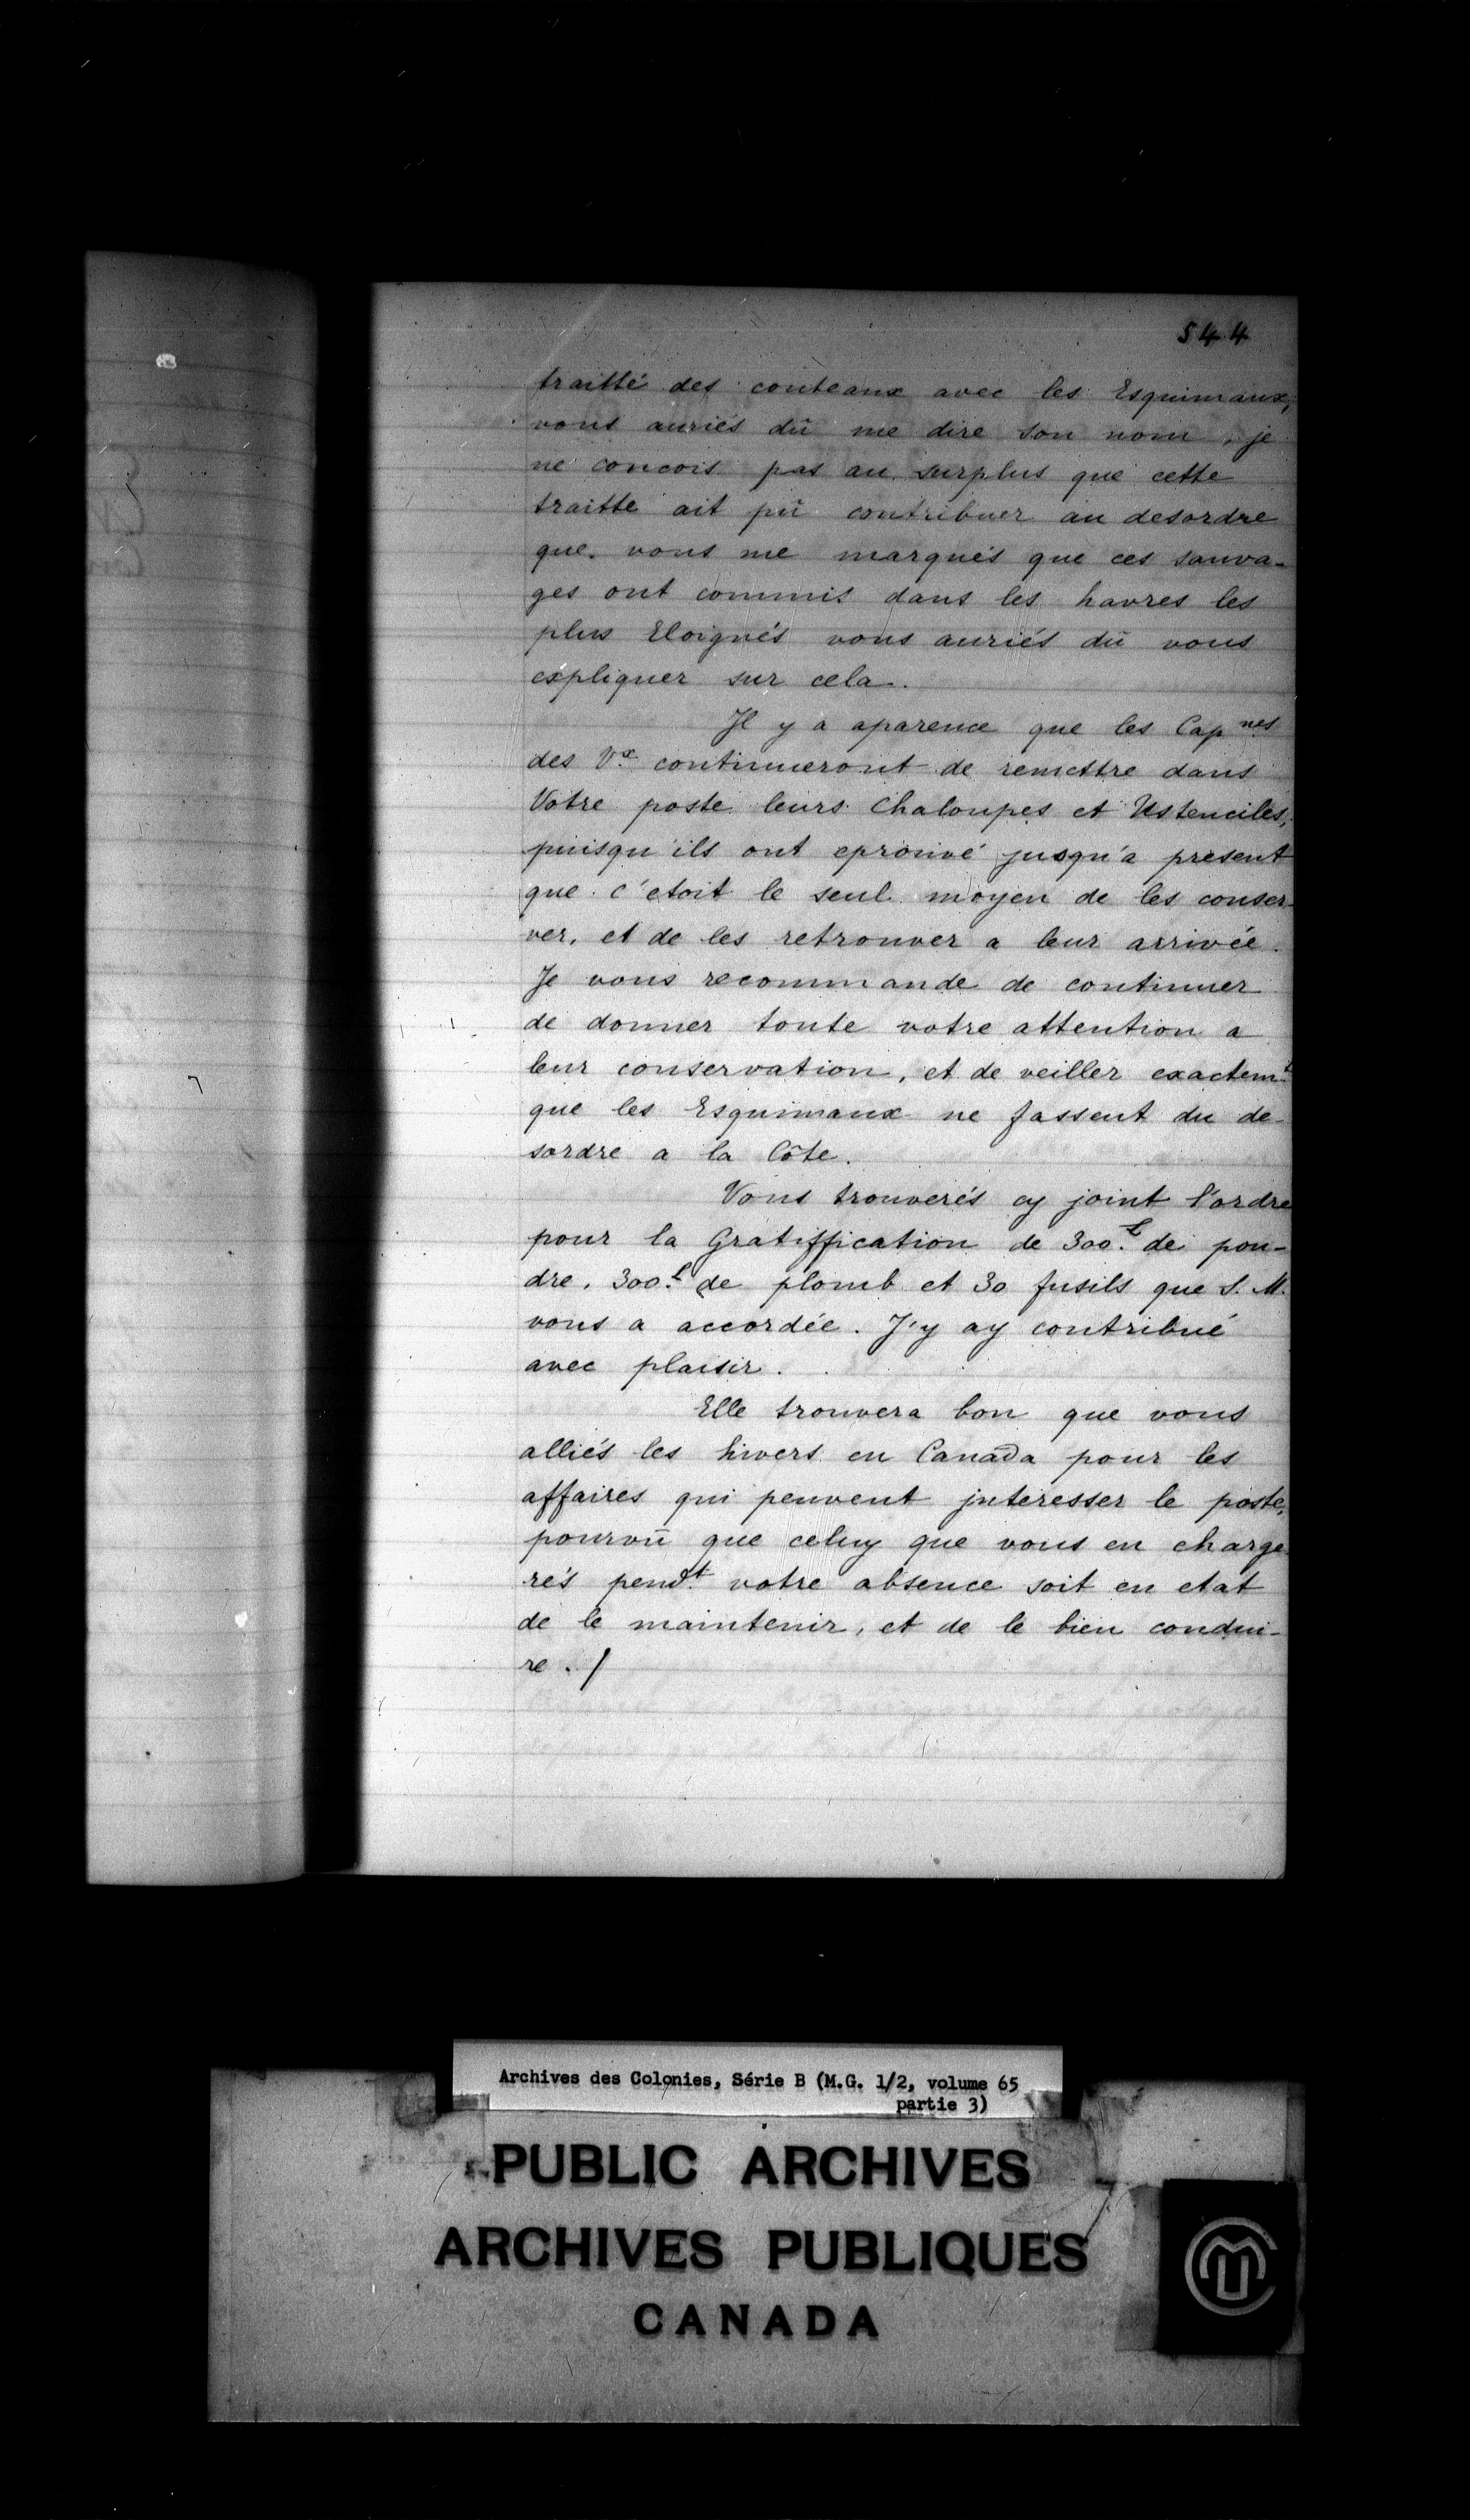 544
traitté des couteaux avec les Esquimaux,
vous auriés dû me dire son nom, je
ne concois pas au surplus que cette
traitte ait pû contribuer au desordre
que vous me marqués que ces sauva-
ges ont commis dans les havres les
plus Eloignés vous auriés dû vous
expliquer sur cela.
Il y a aparence que les Cap nes
des Vx continueront de remettre dans
Votre poste leurs Chaloupes et Ustenciles,
puisqu'ils ont eprouvé jusqu'a present
que c'etoit le seul moyen de les conser-
ver, et de les retrouver a leur arrivée.
Je vous recommande de continuer
de donner toute votre attention a
leur conservation, et de veiller exactemt
que les Esquimaux ne fassent du de-
sordre a la Côte.
Vous trouverés cy joint l'ordre
pour la Gratiffication de 300.l de pou-
dre, 300.l de plomb et 30 fusils que S. M.
vous a accordée. J'y ay contribué
avec plaisir.
Elle trouvera bon que vous
alliés les hivers en Canada pour les
affaires qui peuvent jnteresser le poste,
pourvû que celuy que vous en charge
rés pendt votre absence soit en etat
de le maintenir, et de le bien condui-
re ./
Archives des Colonies, Série B (M.G. 1/2, volume 65
partie 3)
PUBLIC ARCHIVES
ARCHIVES PUBLIQUES
CANADA